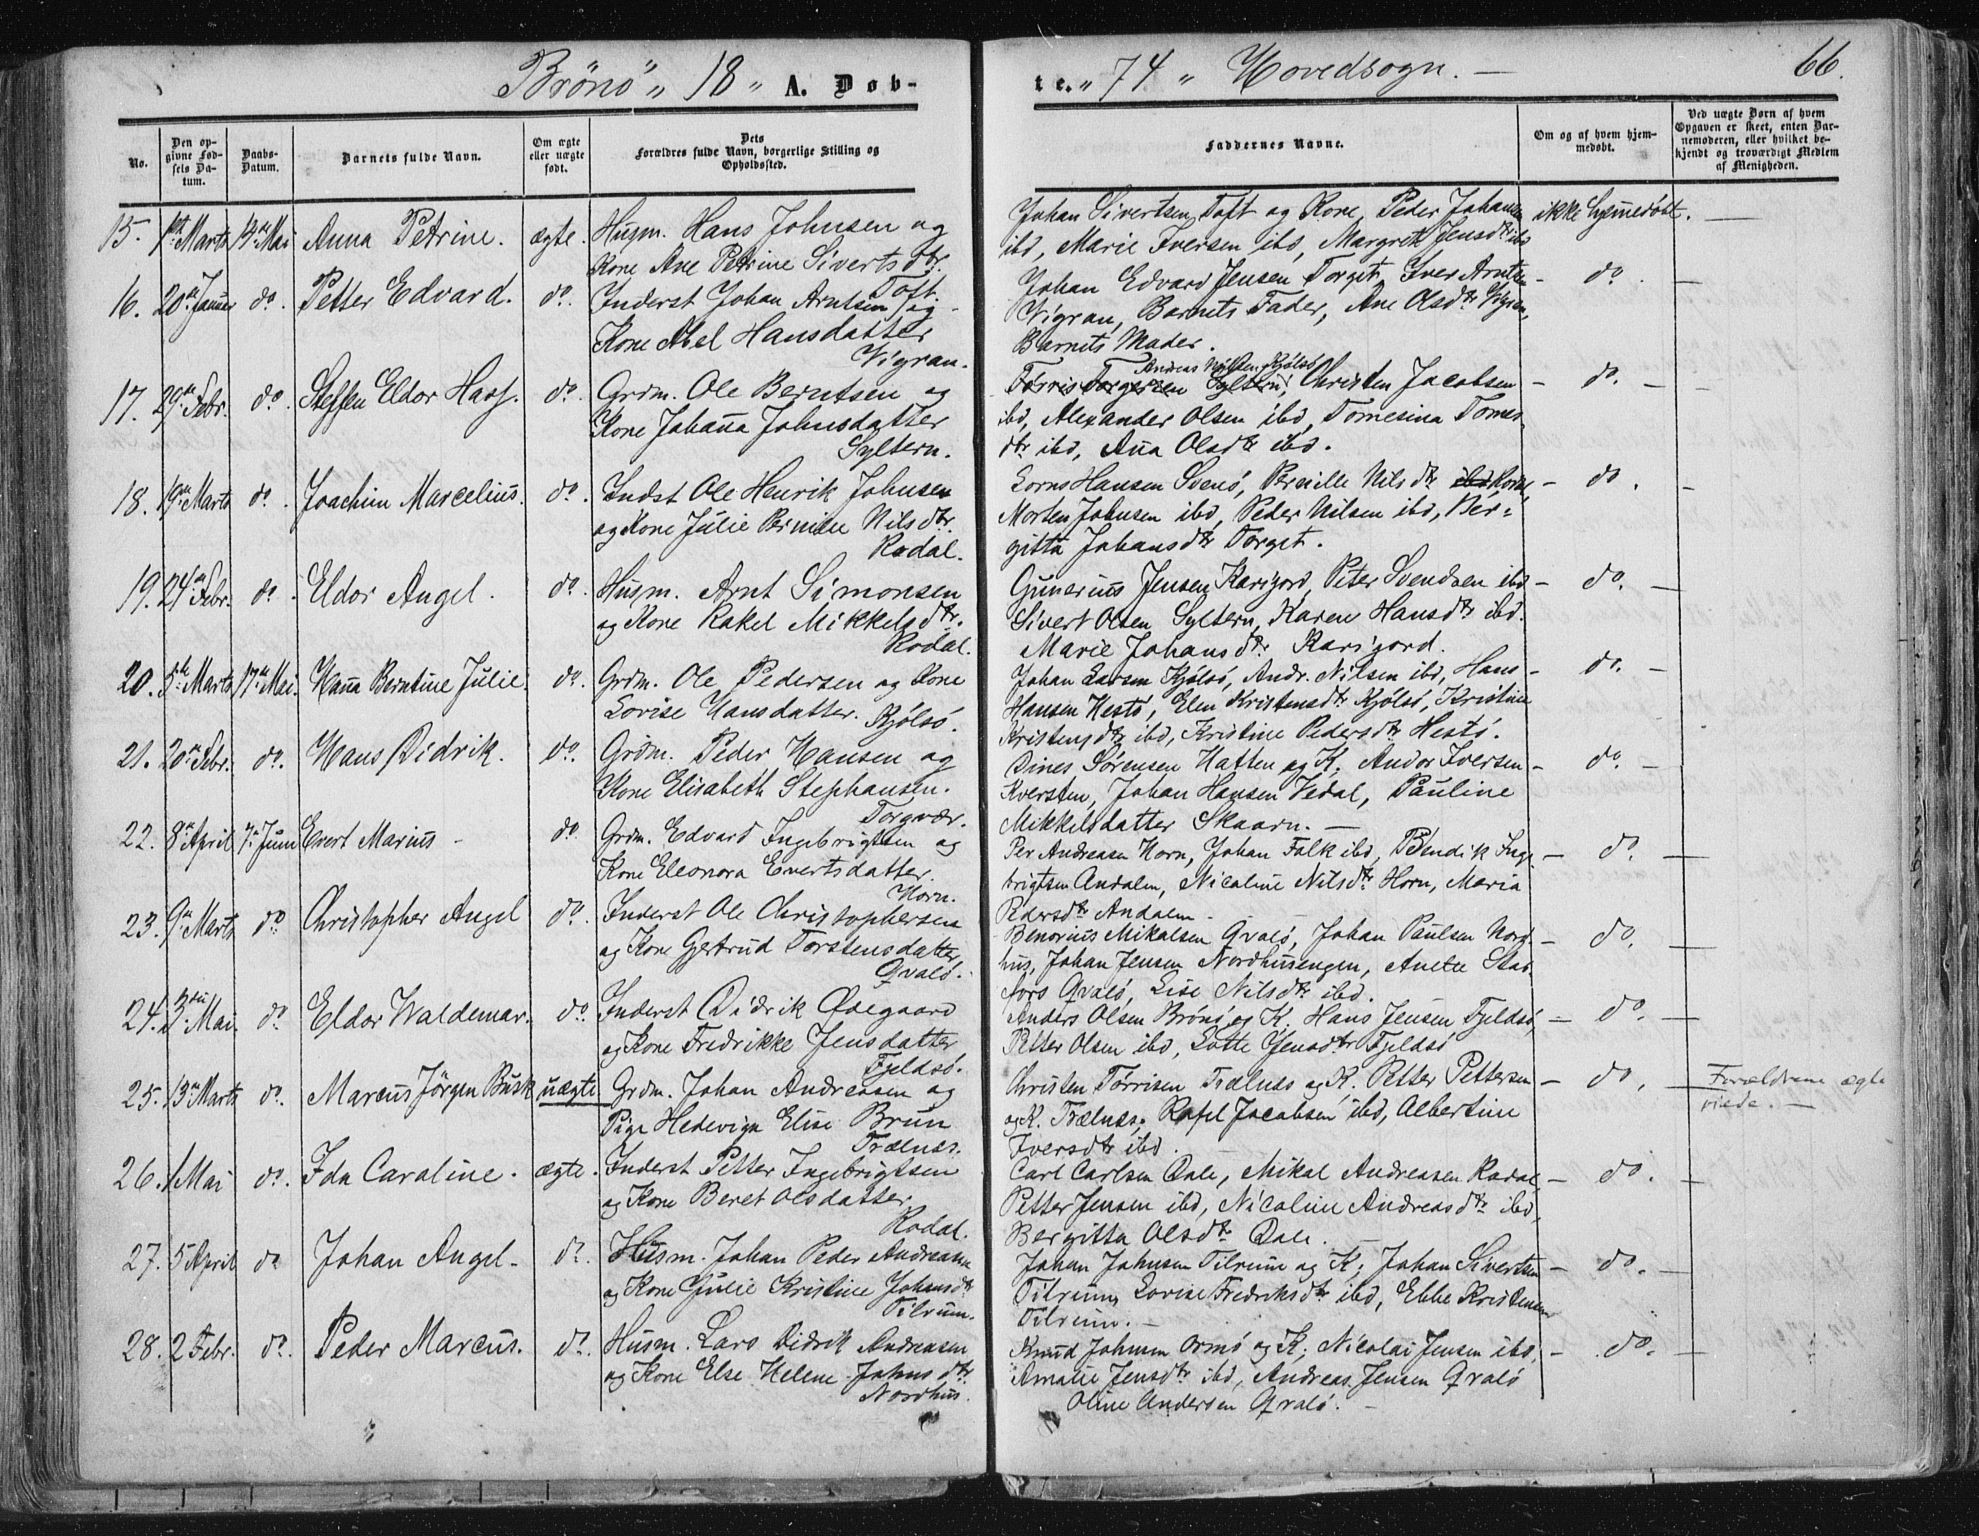 Brönö „ 18 „ A. Døb-
No.
Den op-
givne Fød-
sels Da-
tum.
Daabs-
Datum.
Barnets fulde Navn.
Om ægte
eller uægte
født.
Dets
Forældres fulde Navn, borgerlige Stilling og
Opholdssted.
15. 1ste Marts 14de Mai Anna Petrine. ægte. Husm. Hans Johnsen og
Kone Ane Petrine Siverts dtr.
Toft.
16. 20de Januar do. Petter Edvard. do. Inderst Johan Arntsen og
Kone Abel Hansdatter
Vigran.
17. 29de Febr. do. Steffen Eldor Haas. do. Grdm. Ole Berntsen og
Kone Johanna Johnsdatter
Syltern.
18. 19de Marts do. Joachim Marcelius. do. Indst Ole Henrik Johnsen
og Kone Julie Nils dtr.
Rodal.
19. 24de Febr. do. Eldor Angel. do. Husm. Arnt Simonsen
og Kone Rakel Mikkels dtr.
Rodal.
20. 5te Marts 17de Mai. Hanna Berntine Julie. do. Grdm. Ole Pedersen og Kone
Lovise Hansdatter. Kjölsö.
21. 20de Febr. do. Hans Didrik. do. Grdm. Peder Hansen og
Kone Elisabeth Stephansen.
Torgvær.
22. 8de April 7de Juni Evert Marius - do. Grdm. Edvard Ingebrigtsen og
Kone Eleonora Evertsdatter.
Horn.
23. 9de Marts do. Christopher Angel do. Inderst Ole Christophersen
og Kone Gjertrud Torstensdatter,
Qvalö.
24. 3die Mai. do. Eldor Waldemar. do. Inderst Didrik Ødegaard
og Kone Fredrikke Jensdatter
Fjeldsö.
25. 13de Marts do. Marcus Jörgen Busk uægte Grdm. Johan Andreasen og
Pige Hedevign Elise Brun
Trælnæs.
26. 1 Mai do. Ida Caroline. ægte. Inderst Petter Ingebrigtsen
og Kone Beret Olsdatter
Rodal.
27. 5 April do Johan Angel. do. Husm. Johan Peder Andreasen
og Kone Julie Kristine Johansdtr
Tilrum.
28. 2 Febr. do. Peder Marcus. do. Husm. Lars Didrik Andreasen
og Kone Else Helene Johns dtr.
Nordhus.
te. „ 74 „ Hovedsogn. —
66.
Faddernes Navne.
Om og af hvem hjem-
medøbt.
Ved uægte Børn af hvem
Opgaven er skeet, enten Bar-
nemoderen, eller hvilket be-
kjendt og troværdigt Medlem
af Menigheden.
Johan Sivertsen Toft og Kone, Peder Johansen ikke hjemedöbt. —
ibd, Marie Iversen ibd, Margrete Jensdtr ibd
Johan Edvard Jensen Torget, Iver Arntsen - do. —
Vigran, Barnets Fader, Ane Olsdtr Vigran,
Barnets Moder.
Andreas Nilsen Kjölsö
Törris Torgersen Syltern, Christen Jacobsen - do. —
ibd, Alexander Olsen ibd, Tomesina Tomes
dtr ibd, Ana Olsdtr ibd.
Lorns Hansen Svenö, Pernille Nils dtr ibd - do. —
Morten Johnsen ibd, Peder Nilsen ibd, Ber-
gitta Johansdtr Torget.
Gunerius Jensen Karigord, Peter Svendsen ibd - do. —
Sivert Olsen Syltern, Karen Hansdtr ibd.
Marie Johansdtr Karigord.
Johan Larsen Kjölsö, Andr. Nilsen ibd, Hans - do. —
Hansen Hestö, Elen Kristensdtr Kjölsö, Kristine
Kristensdtr ibd, Kristine Pedersdtr Hestö.
Dines Sörensen Hatten og K, Andor Iversen - do. —
Kversten, Johan Hansen Vedal, Pauline
Mikkelsdatter Skaarn. —
Per Andreasen Horn, Johan Falk ibd, Bendik Inge - do. —
brigtsen Andalen, Nicoline Nilsdtr Horn, Maria
Pedersdtr Andalen.
Benorius Mikalsen Qvalö, Johan Paulsen Nord- - do. —
hus, Johan Jensen Nordhusengen, Anette
Qvalö, Lise Nilsdtr ibd.
Anders Olsen Brönö og K, Hans Jensen Fjeldsö, - do. —
Petter Olsen ibd, Lotte Jensdtr Fjeldsö
Christen Törrisen Trælnæs og K. Petter Pettersen - do. Forældrene ægte
og K. Trælnæs, Jacobsen ibd, Albertine viede. —
Iversdtr ibd.
Carl Carlsen Dale, Mikal Andreasen Rodal, - do. —
Petter Jensen ibd, Nicoline Andreas dtr ibd,
Bergitta Olsdtr Dale. —
Johan Johnsen Tilrum og K, Johan Sivertsen - do. —
Tilrum, Lovise Fredriksdtr ibd, Ebbe Kristensen
Tilrum. —
Knud Johnsen Ormö og K; Nicolai Jensen ibd, - do. —
Amalie Jensdtr ibd, Andreas Jensen Qvalö
Oline Andersen Qvalö. —